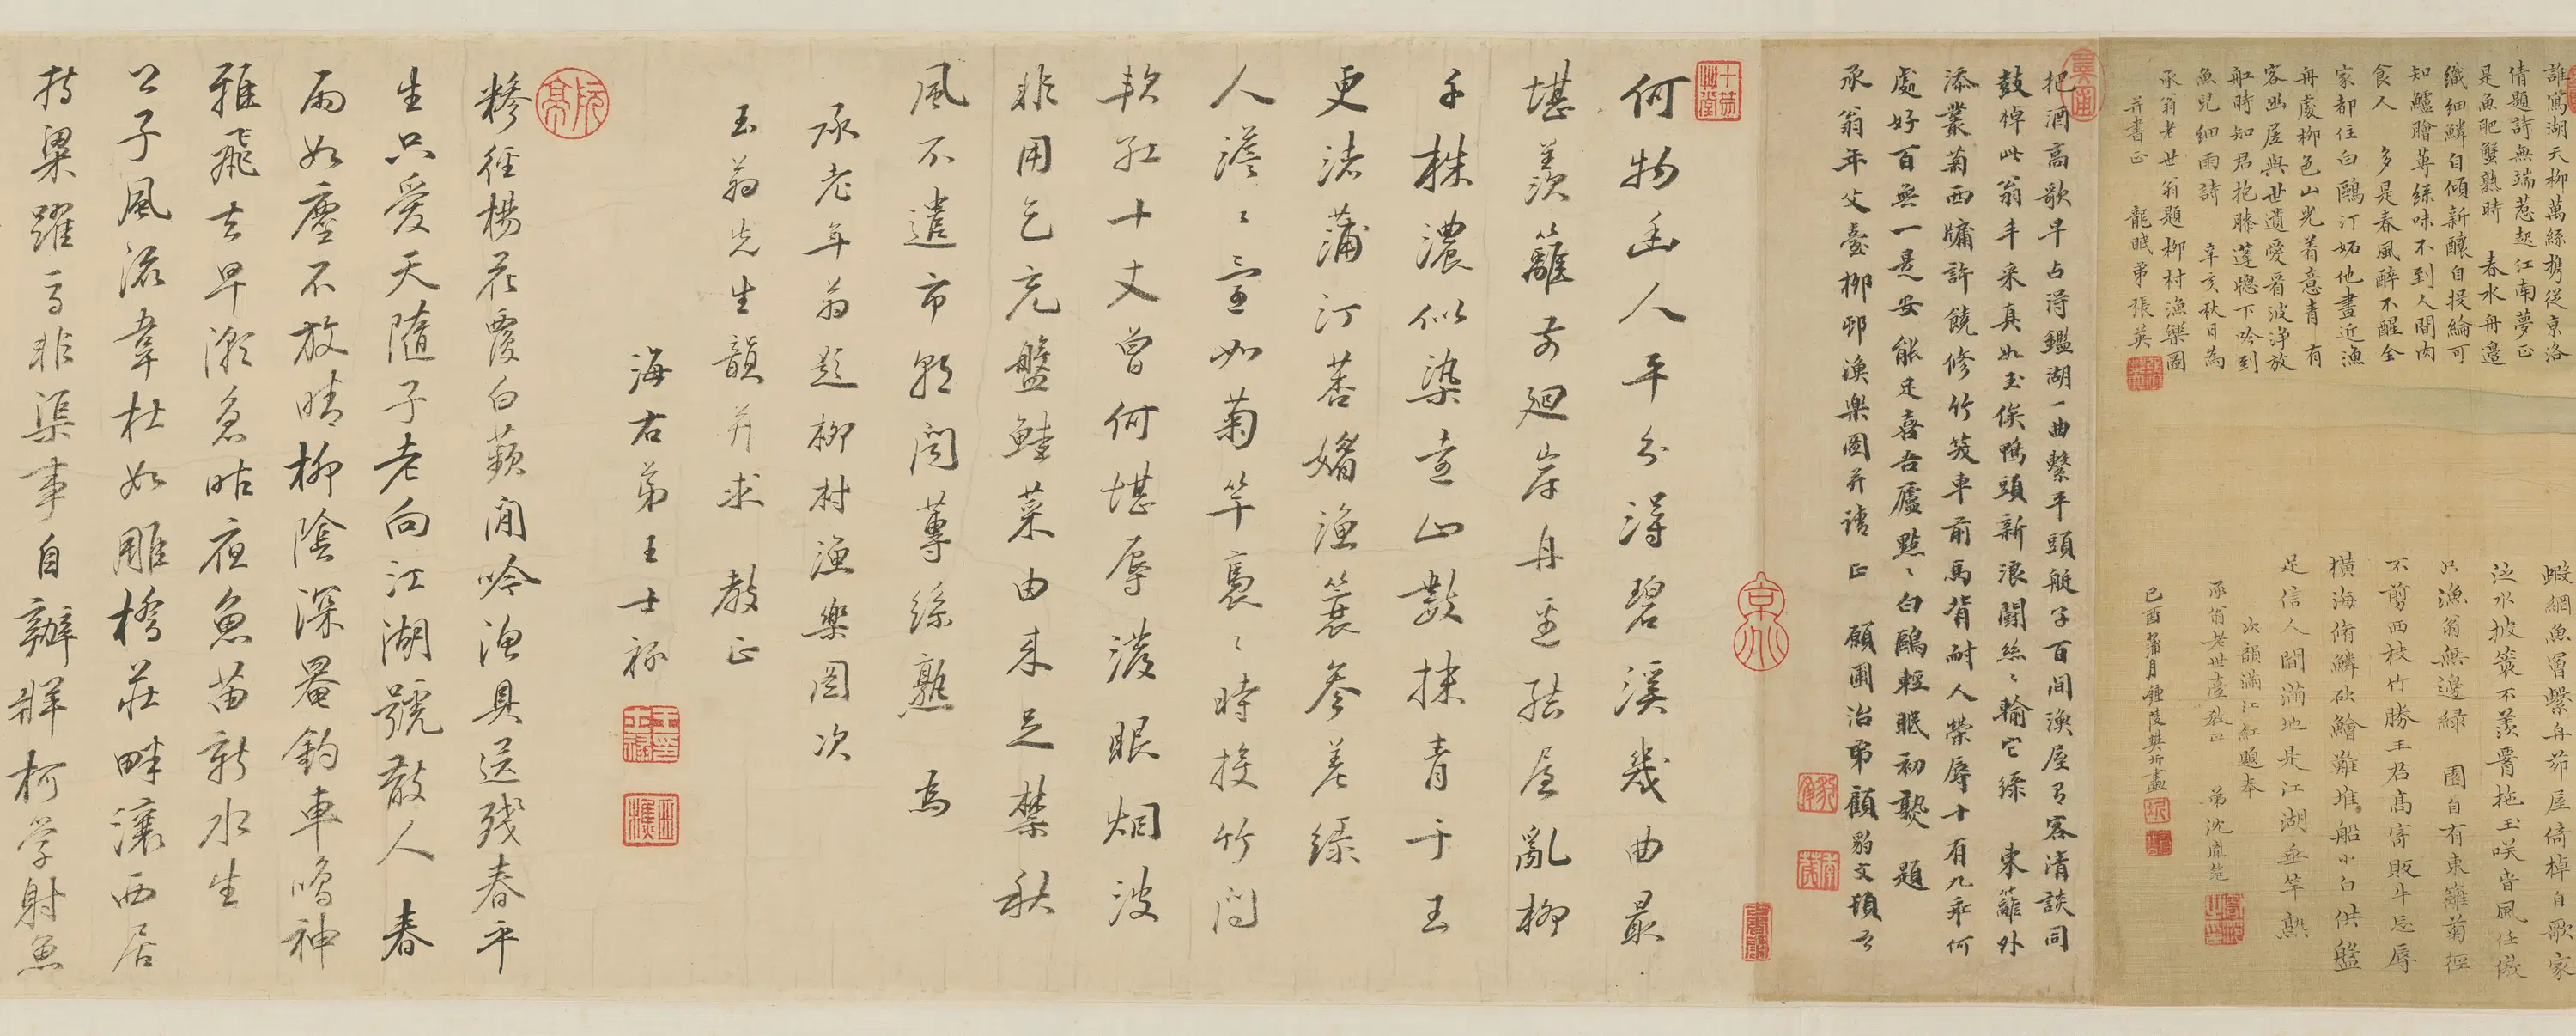 誰寫湖天柳萬絲携從京洛
倩題詩無端惹起江南夢正
是魚肥蟹熟時 春水舟邊
織細鱗自傾新釀自投綸可
知鱸膾蓴絲味不到人間肉
食人 多是春風醉不醒全
家都住白鷗汀妬他畫近漁
舟處柳色山光着意青 有
客幽居與世遺愛看波淨放
舡時知君抱膝蓬牕下吟到
魚兒細雨詩 辛亥秋日為
承翁老世翁題柳村漁樂圖
并書正 龍眠弟張英
蝦網魚罾繫舟茆屋倚棹自歌家
泛水披簑不羨腰拖玉咲皆風任傲
只漁翁無邊綠 園自有東籬菊徑
不剪西枝竹勝王君高寄販牛忘辱
橫海脩鱗砍鱠難堆船小白供盤
足信人間滿地是江湖垂竿熟
次韻滿江紅題奉
承翁老世臺教正 弟沈胤笵
己酉蒲月鍾陵樊圻畫
把酒高歌早占得鑑湖一曲繫平頭艇子百間漁屋有客清談同
鼓棹此翁丰采真如玉俟鴨頭新浪闊絲〻輸它綠 東籬外
添叢菊西牖許饒修竹笑車前馬背耐人榮辱十有九乖何
處好百無一是安能足喜吾廬點〻白鷗輕眠初熟 題
承翁年父臺柳邨漁樂圖并請正 願圃治弟顧豹文頓首
何物幽人平分得碧溪幾曲最
堪羡籬前迴岸舟至結屋亂柳
千株濃似染遠山數抹青于玉
更渚蒲汀荇媚漁簑參差綠
人澹〻宜如菊竿裊〻時投竹問
軟紅十丈曾何堪辱潑眼烟波
非用乞充盤鮭菜由來足禁秋
風不遣市朝聞蓴絲熟 為
承老年翁題柳村漁樂圖次
玉翁先生韻并求 教正
海右弟王士祿
糝徑楊花覆白蘋閒吟漁具送殘春平
生只愛天隨子老向江湖號散人 春
雨如塵不放晴柳陰深罨釣車鳴神
雅飛去早潮急昨夜魚苗新水生
公子風流韋杜如雕橋莊畔瀼西居
持粱躍馬非渠事自辦牂柯學射魚